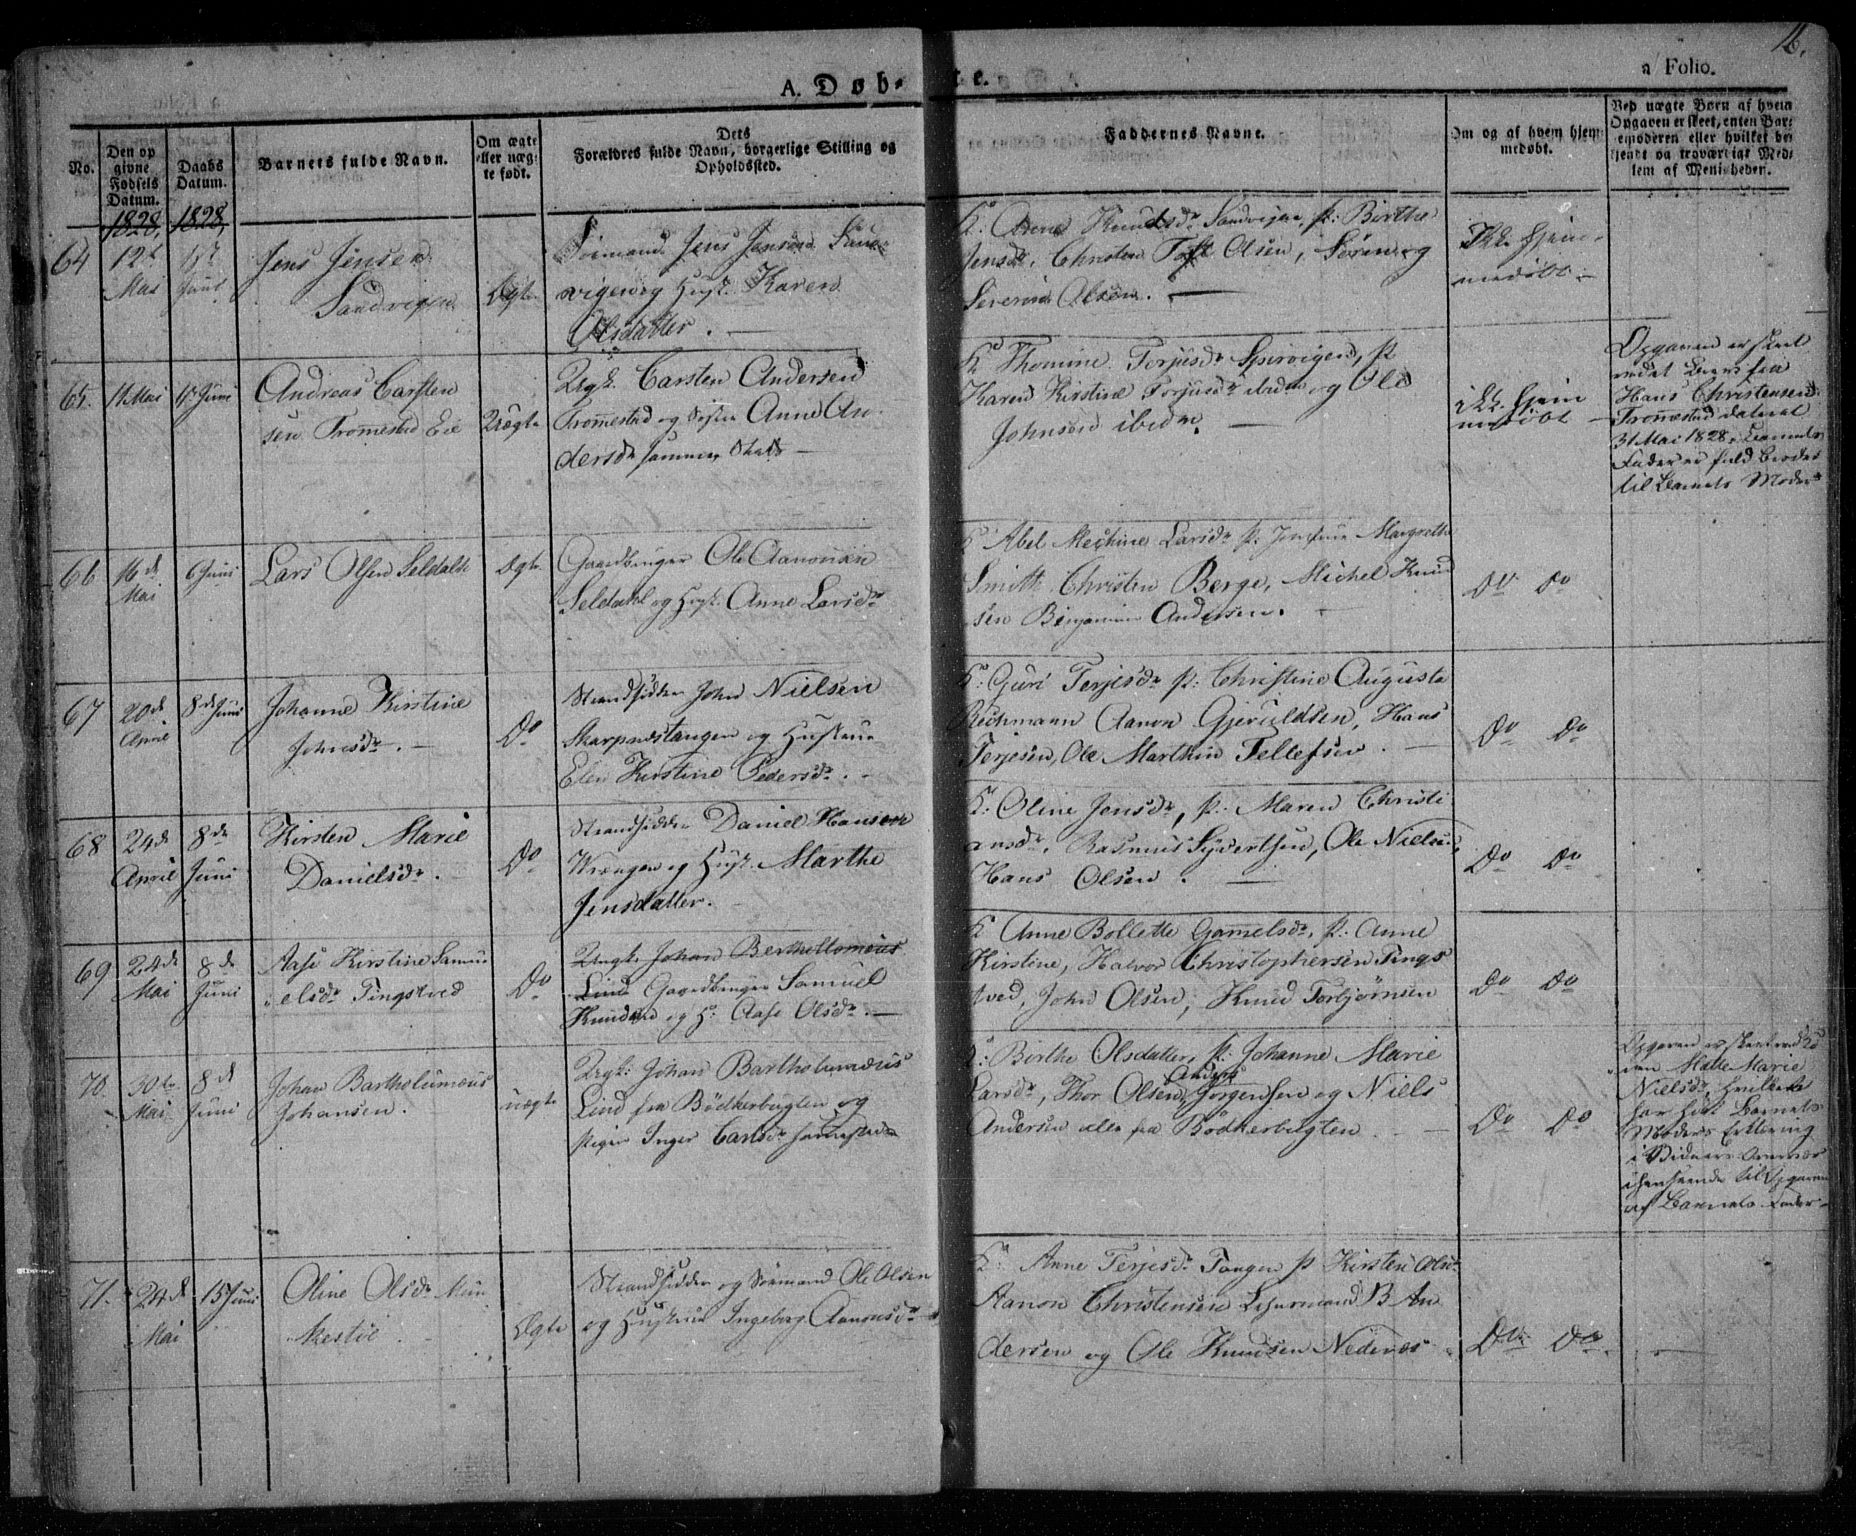 16.
A. Døbte.
a Folio.
No.
Den op
givne
Fødsels
Datum.
Daabs
Datum.
Barnets fulde Navn.
Om ægte
eller uæg-
te født.
Dets
Forældres fulde Navn, borgerlige Stilling og
Opholdssted.
Faddernes Navne.
Om og af hvem hjem-
medøbt.
Ved uægte Børn af hvem
Opgaven er skeet, enten Bar-
nemoderen eller hvilket be-
kjendt og troværdigt Med-
lem af Menigheden.
1828, 1828,
64
12t
Mai
Juni
Jens Jensen
Sandvigen
Ægte
Sömand Jens Jensen San
vigen og Hust. Karen
Olsdatter.
K: Anne Knudsdr Sandvigen, p: Birthe
Jensdr, Christen Toft Olsen, Sören og
Severin Olsen.
Ikke hjem-
medöbt
65.
11 Mai
Juni
Andreas Carsten
sen Tromestad Eie
Uægte
Ungk. Carsten Andersen
Tromestad og Anne An
dersdr sammen Steds
K Thomine Terjesdr Spirvigen, p
Karen Kirstine Terjesdr ibidem og Ole
Johnsen ibidm.
ikke hjem
medöbt
Opgaven er skeet
Hans Christensen
Tromestad dateret
31 Mai 1828, Barnets
Fader er
til Barnets Moder
66
16 de
Mai
6 Juni
Lars Olsen Seldahl
Ægte
Gaardbruger Ole Aanonsen
Seldahl og Hust. Anne Larsdr
K Abel Mechine Larsdr p. Margrethe
Smith, Christen Berge, Michel Knud
sen Binjamin Andersen.
Do Do
67
20 de
April
8de Juni
Johanne Kirstine
Johnsdr.
Do
Strandsidder John Nielsen
Skarpnestangen og Hustrue
Elen Kirstine Pedersdr.
K: Guri Terjesdr p: Christine Augusta
Bechmann Aanon Gjeruldsen, Hans
Terjesen, Ole Marthin Tellefsen.
Do Do
68
24de
April
8de
Juni
Kirsten Marie
Danielsdr.
Do
Strandsidder Daniel Hansen
Vrængen og Hust. Marthe
Jensdatter.
K: Oline Jensdr, p: Maren Christi
ansdr, Rasmus Syvertsen, Ole Nielsen,
Hans Olsen.
Do Do
69
24de
Mai
8de
Juni
Aase Kirstine Samu
elsdr Tingstved
Do
Ungk. Johan Berthellomeus
Lind Gaardbruger Samuel
Knudsen og H. Aase Olsdr.
K Anne Bollette Gamelsdr, p: Anne
Kirstine, Halvor Christophersen Tings
tved, John Olsen, Knud Torbjörnsen
Do Do
70.
30te
Mai
8de
Juni
Johan Bartholumæus
Johansen.
uægte
Ungk: Johan Bartholumæus
Lind fra Bödkerbugten og
Pigen Inger Carlsdr sammesteds
K: Birthe Olsdatter, p: Johanne Marie
Anders
Larsdr, Thor Olsen, Jörgensen og Niels
Andersen alle fra Bödkerbugten
Do Do
Opgaven er skeet ved
Mette Marie
Nielsdr, hvilken
har hört Barnets
Moders Erklæring
i Vidners Overvær
i henseende til Opgaven
af Barnets Fader
71.
24de
Mai
15 Juni
Oline Olsdr Mun
kestöe
Ægte
Strandsidder og Sömand Ole Olsen
og Hustrue Ingeborg Aanonsdr
K: Anne Terjesdr Tangen p Kirsten Olsdr
Aanon Christensen B An
dersen og Ole Knudsen Nedenes
Do Do